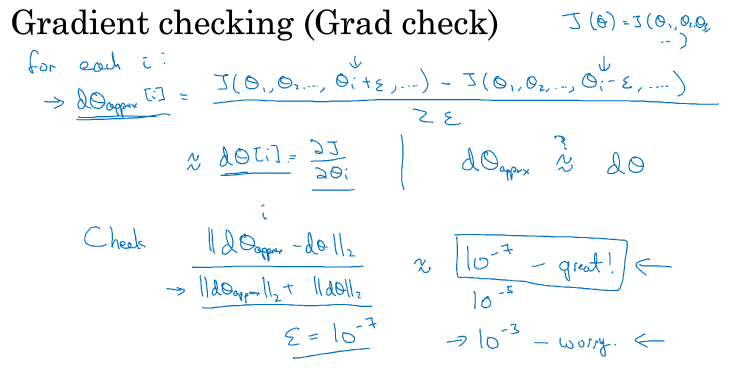 Gradient checking (Grad check)
J(θ) = J(θ₁, θ₂, θ₃, ...)
for each i:
→ dθapprox[i] = J(θ₁, θ₂, ..., θᵢ+ε, ...) - J(θ₁, θ₂, ..., θᵢ-ε, ...)
2ε
≈ dθ[i] = ∂J/∂θᵢ | dθapprox ≈? dθ
i
Check ||dθapprox - dθ||₂
→ ||dθapprox||₂ + ||dθ||₂
≈ 10⁻⁷ - great! ←
10⁻⁵
ε = 10⁻⁷
→ 10⁻³ - worry. ←